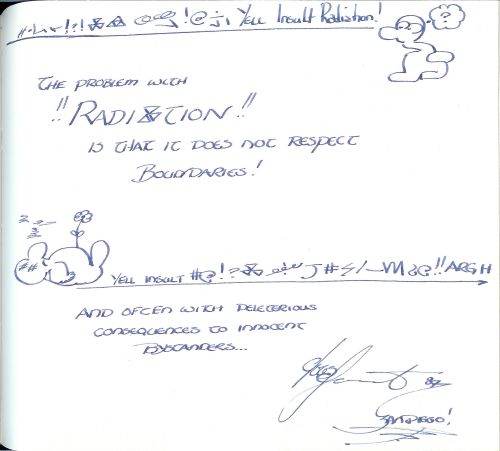 #!?! @!@ Yell Insult Radiation!
?
THE PROBLEM WITH
!! RADIATION !!
IS THAT IT DOES NOT RESPECT
BOUNDARIES!
YELL INSULT #@!?!! ARGH
AND OFTEN WITH DELETERIOUS
CONSEQUENCES TO INNOCENT
BYSTANDERS...
87
SAN DIEGO!